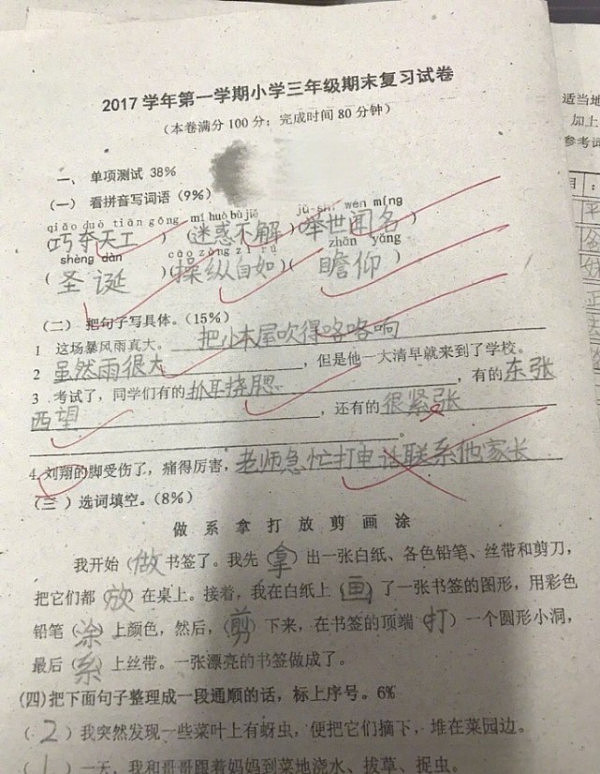 2017 学年第一学期小学三年级期末复习试卷
(本卷满分 100 分; 完成时间 80 分钟)
一、 单项测试 38%
(一) 看拼音写词语 (9%)
qiǎo duó tiān gōng mí huò bù jiě jǔ shì wén míng
巧夺天工 ) (迷惑不解) (举世闻名 )
shèng dàn cāo zòng zì rú zhān yǎng
( 圣诞 )(操纵自如)( 瞻仰 )
(二) 把句子写具体。(15%)
1 这场暴风雨真大。 把小木屋吹得咯咯响
2 虽然雨很大 , 但是他一大清早就来到了学校。
3 . 考试了, 同学们有的 抓耳挠腮 , 有的 东张
西望 , 还有的 很紧张
4. 刘翔的脚受伤了, 痛得厉害, 老师急忙打电话联系他家长
(三) 选词填空。(8%)
做 系 拿 打 放 剪 画 涂
我开始 (做) 书签了。我先 (拿) 出一张白纸、各色铅笔、丝带和剪刀,
把它们都 (放) 在桌上。接着, 我在白纸上 (画) 了一张书签的图形, 用彩色
铅笔 (涂) 上颜色, 然后, (剪) 下来, 在书签的顶端 (打) 一个圆形小洞,
最后 (系) 上丝带。一张漂亮的书签做成了。
(四) 把下面句子整理成一段通顺的话, 标上序号。6%
( 2 ) 我突然发现一些菜叶上有蚜虫, 便把它们摘下, 堆在菜园边。
( 1 ) 一天, 我和哥哥跟着妈妈到菜地浇水、拔草、捉虫。
适当地
加上
参考词